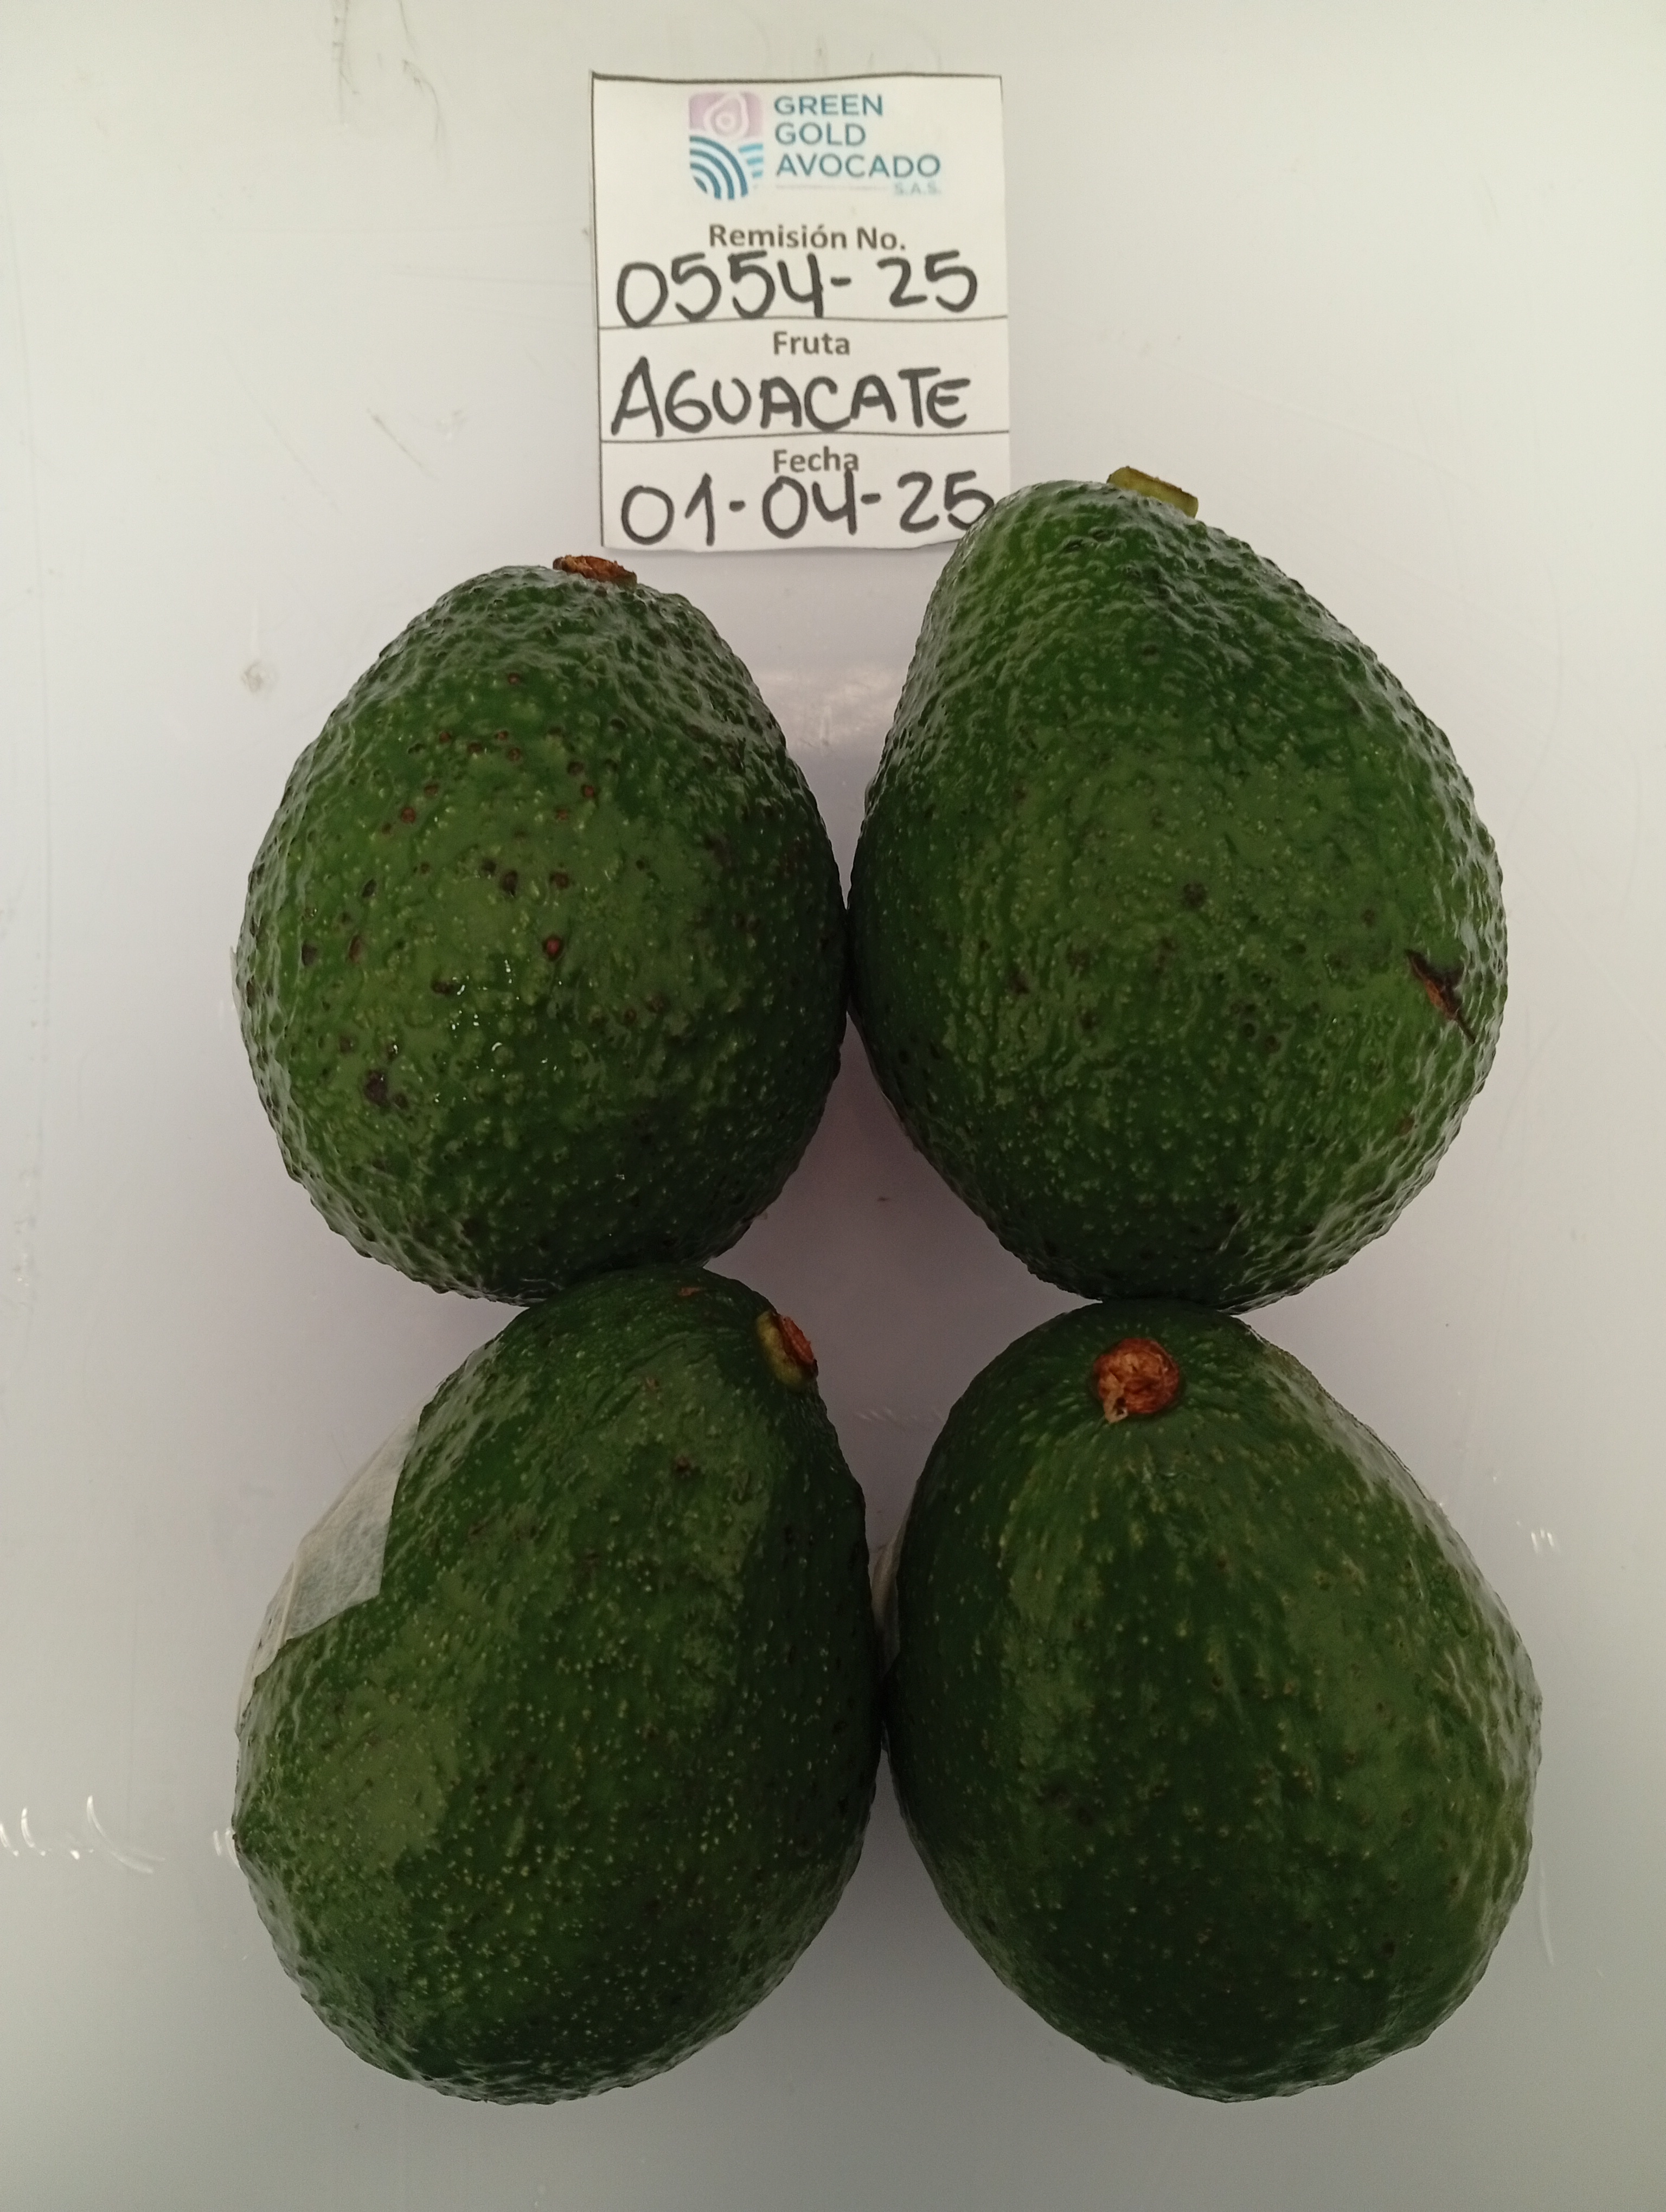 GREEN
GOLD
AVOCADO
S.A.S.
Remisión No.
0554-25
Fruta
AGUACATE
Fecha
01-04-25